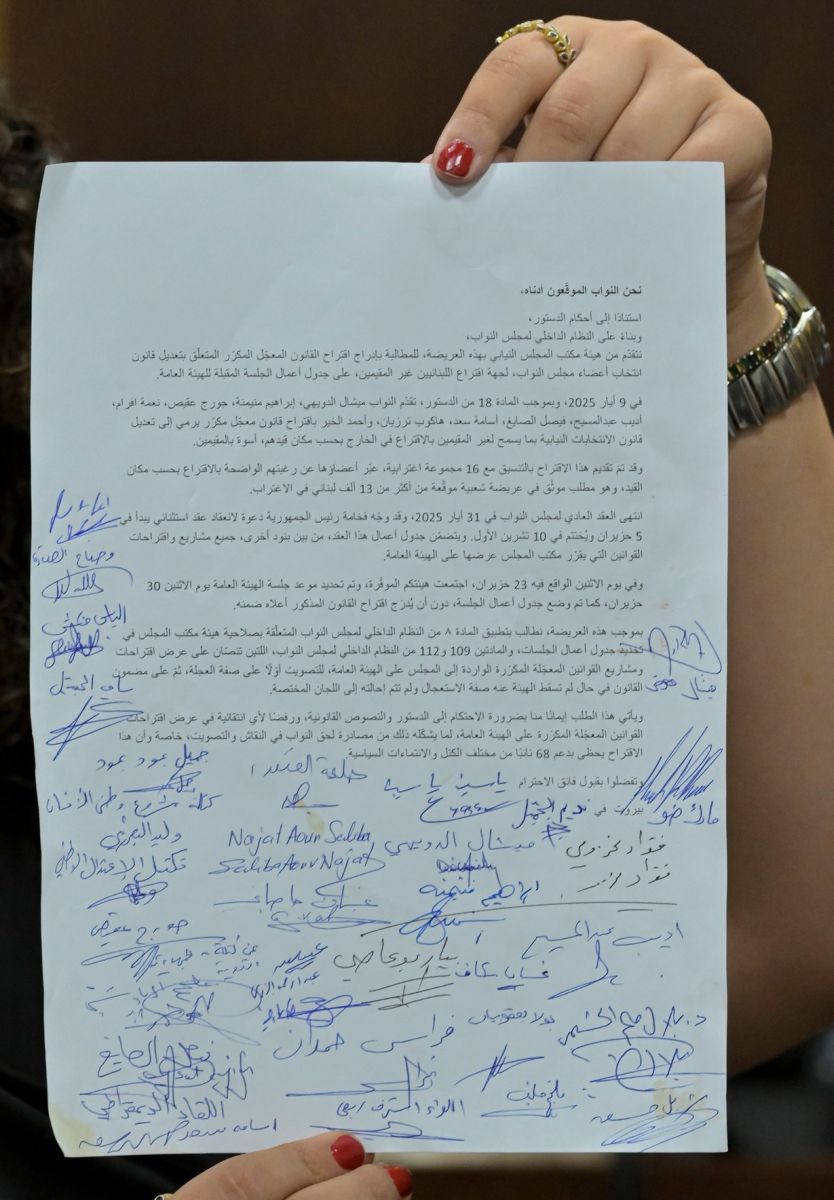 نحن النواب الموقّعون أدناه،
استنادًا إلى أحكام الدستور،
وبناءً على النظام الداخلي لمجلس النواب،
نتقدّم من هيئة مكتب المجلس النيابي بهذه العريضة، للمطالبة بإدراج اقتراح القانون المعجّل المكرّر المتعلّق بتعديل قانون
انتخاب أعضاء مجلس النواب، لجهة اقتراع اللبنانيين غير المقيمين، على جدول أعمال الجلسة المقبلة للهيئة العامة.
في 9 أيار 2025، وبموجب المادة 18 من الدستور، تقدّم النواب ميشال الدويهي، إبراهيم منيمنة، جورج عقيص، نعمة افرام،
أديب عبدالمسيح، فيصل الصايغ، أسامة سعد، هاكوب ترزيان، وأحمد الخير باقتراح قانون معجّل مكرّر يرمي إلى تعديل
قانون الانتخابات النيابية بما يسمح لغير المقيمين بالاقتراع في الخارج بحسب مكان قيدهم، أسوة بالمقيمين.
وقد تمّ تقديم هذا الاقتراح بالتنسيق مع 16 مجموعة اغترابية، عبّر أعضاؤها عن رغبتهم الواضحة بالاقتراع بحسب مكان
القيد، وهو مطلب موثّق في عريضة شعبية موقّعة من أكثر من 13 ألف لبناني في الاغتراب.
انتهى العقد العادي لمجلس النواب في 31 أيار 2025، وقد وجّه فخامة رئيس الجمهورية دعوة لانعقاد عقد استثنائي يبدأ في
5 حزيران ويُختتم في 10 تشرين الأول. ويتضمّن جدول أعمال هذا العقد، من بين بنود أخرى، جميع مشاريع واقتراحات
القوانين التي يقرّر مكتب المجلس عرضها على الهيئة العامة.
وفي يوم الاثنين الواقع فيه 23 حزيران، اجتمعت هيئتكم الموقّرة، وتم تحديد موعد جلسة الهيئة العامة يوم الاثنين 30
حزيران، كما تم وضع جدول أعمال الجلسة، دون أن يُدرَج اقتراح القانون المذكور أعلاه ضمنه.
بموجب هذه العريضة، نطالب بتطبيق المادة ٨ من النظام الداخلي لمجلس النواب المتعلّقة بصلاحية هيئة مكتب المجلس في
تحديد جدول أعمال الجلسات، والمادتين 109 و112 من النظام الداخلي لمجلس النواب، اللتين تنصّان على عرض اقتراحات
ومشاريع القوانين المعجّلة المكرّرة الواردة إلى المجلس على الهيئة العامة، للتصويت أوّلًا على صفة العجلة، ثمّ على مضمون
القانون في حال لم تسقط الهيئة عنه صفة الاستعجال ولم تتم إحالته إلى اللجان المختصة.
ويأتي هذا الطلب إيمانًا منا بضرورة الاحتكام إلى الدستور والنصوص القانونية، ورفضًا لأي انتقائية في عرض اقتراحات
القوانين المعجّلة المكرّرة على الهيئة العامة، لما يشكّله ذلك من مصادرة لحق النواب في النقاش والتصويت، خاصة وأن هذا
الاقتراح يحظى بدعم 68 نائبًا من مختلف الكتل والانتماءات السياسية
وتفضلوا بقبول فائق الاحترام
بيروت في
وضاح الصادق
الياس حنكش
سامي الجميّل
ميشال معوض
مارك ضو
جميل عبود عبود
ياسين ياسين
نديم الجميّل
وليد البعريني
Najat Aoun Saliba
Saliba Aoun Najat
ميشال الدويهي
فؤاد مخزومي
ابراهيم منيمنة
جورج عقيص
اديب عبد المسيح
بيار بو عاصي
غسان سكاف
بولا يعقوبيان
فراس حمدان
فيصل الصايغ
ملحم خلف
اللقاء الديمقراطي
اللواء اشرف ريفي
اسامه سعد